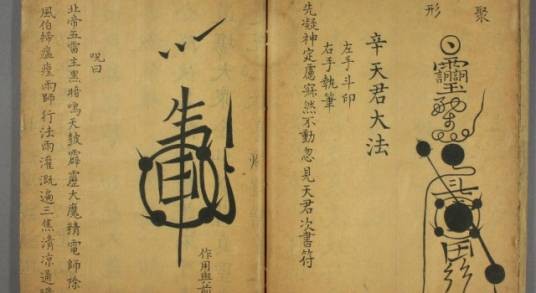 聚形
辛天君大法
左手斗印
右手執筆
先凝神定慮寂然不動忽見天君次書符
作用與前
呪曰
北帝五雷主黑暗鳴天鼓霹靂大魔精電師除
風伯締瘟疫雨師行法雨灌溉遍三焦清涼通